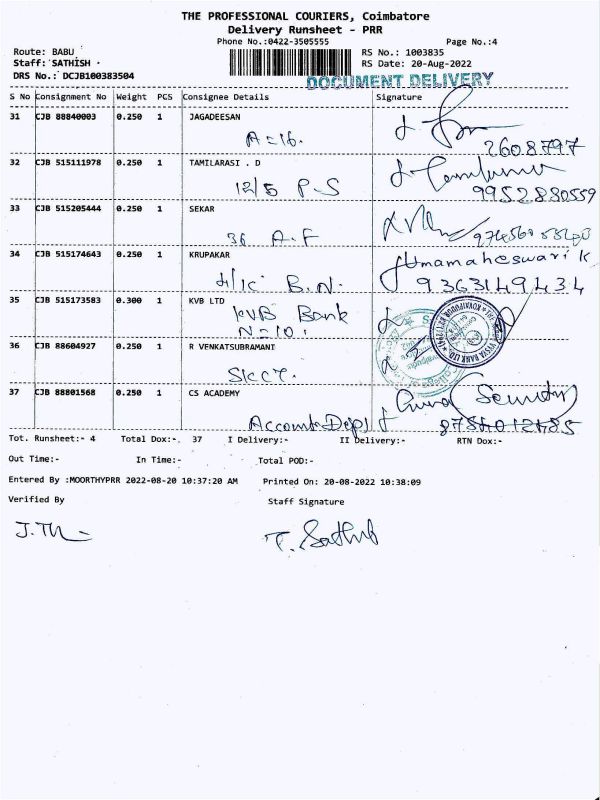 THE PROFESSIONAL COURIERS, Coimbatore
Delivery Runsheet - PRR
Phone No.:0422-3505555 Page No.:4
Route: BABU RS No.: 1003835
Staff: SATHISH . RS Date: 20-Aug-2022
DRS No.: DCJB100383504 DOCUMENT DELIVERY
S No Consignment No Weight PCS Consignee Details Signature
31 CJB 88840003 0.250 1 JAGADEESAN
A=16.
2608797
32 CJB 515111978 0.250 1 TAMILARASI . D
12/5 P.S
9952880559
33 CJB 515205444 0.250 1 SEKAR
36 A.F
34 CJB 515174643 0.250 1 KRUPAKAR Umamaheswari k
B.N. 9363149434
35 CJB 515173583 0.300 1 KVB LTD
KVB Bank
N=10.
36 CJB 88604927 0.250 1 R VENKATSUBRAMANI
37 CJB 88801568 0.250 1 CS ACADEMY
Accounts Dept
Tot. Runsheet:- 4 Total Dox:-. 37 I Delivery:- II Delivery:- RTN Dox:-
Out Time:- In Time:- Total POD:-
Entered By :MOORTHYPRR 2022-08-20 10:37:20 AM Printed On: 20-08-2022 10:38:09
Verified By Staff Signature
T. Sathish